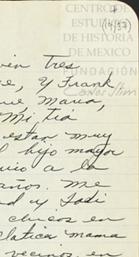 CENTRO DE
ESTUDIOS
DE HISTORIA
DE MEXICO
FUNDACIÓN
Carlos Slim
(14/53)
ven tres
e, y Frank
ue Maria,
Mi tia
estan muy
l hijo mayor
uio a la
años. Me
d y Todi
chicos en
platica mama
vecinos en